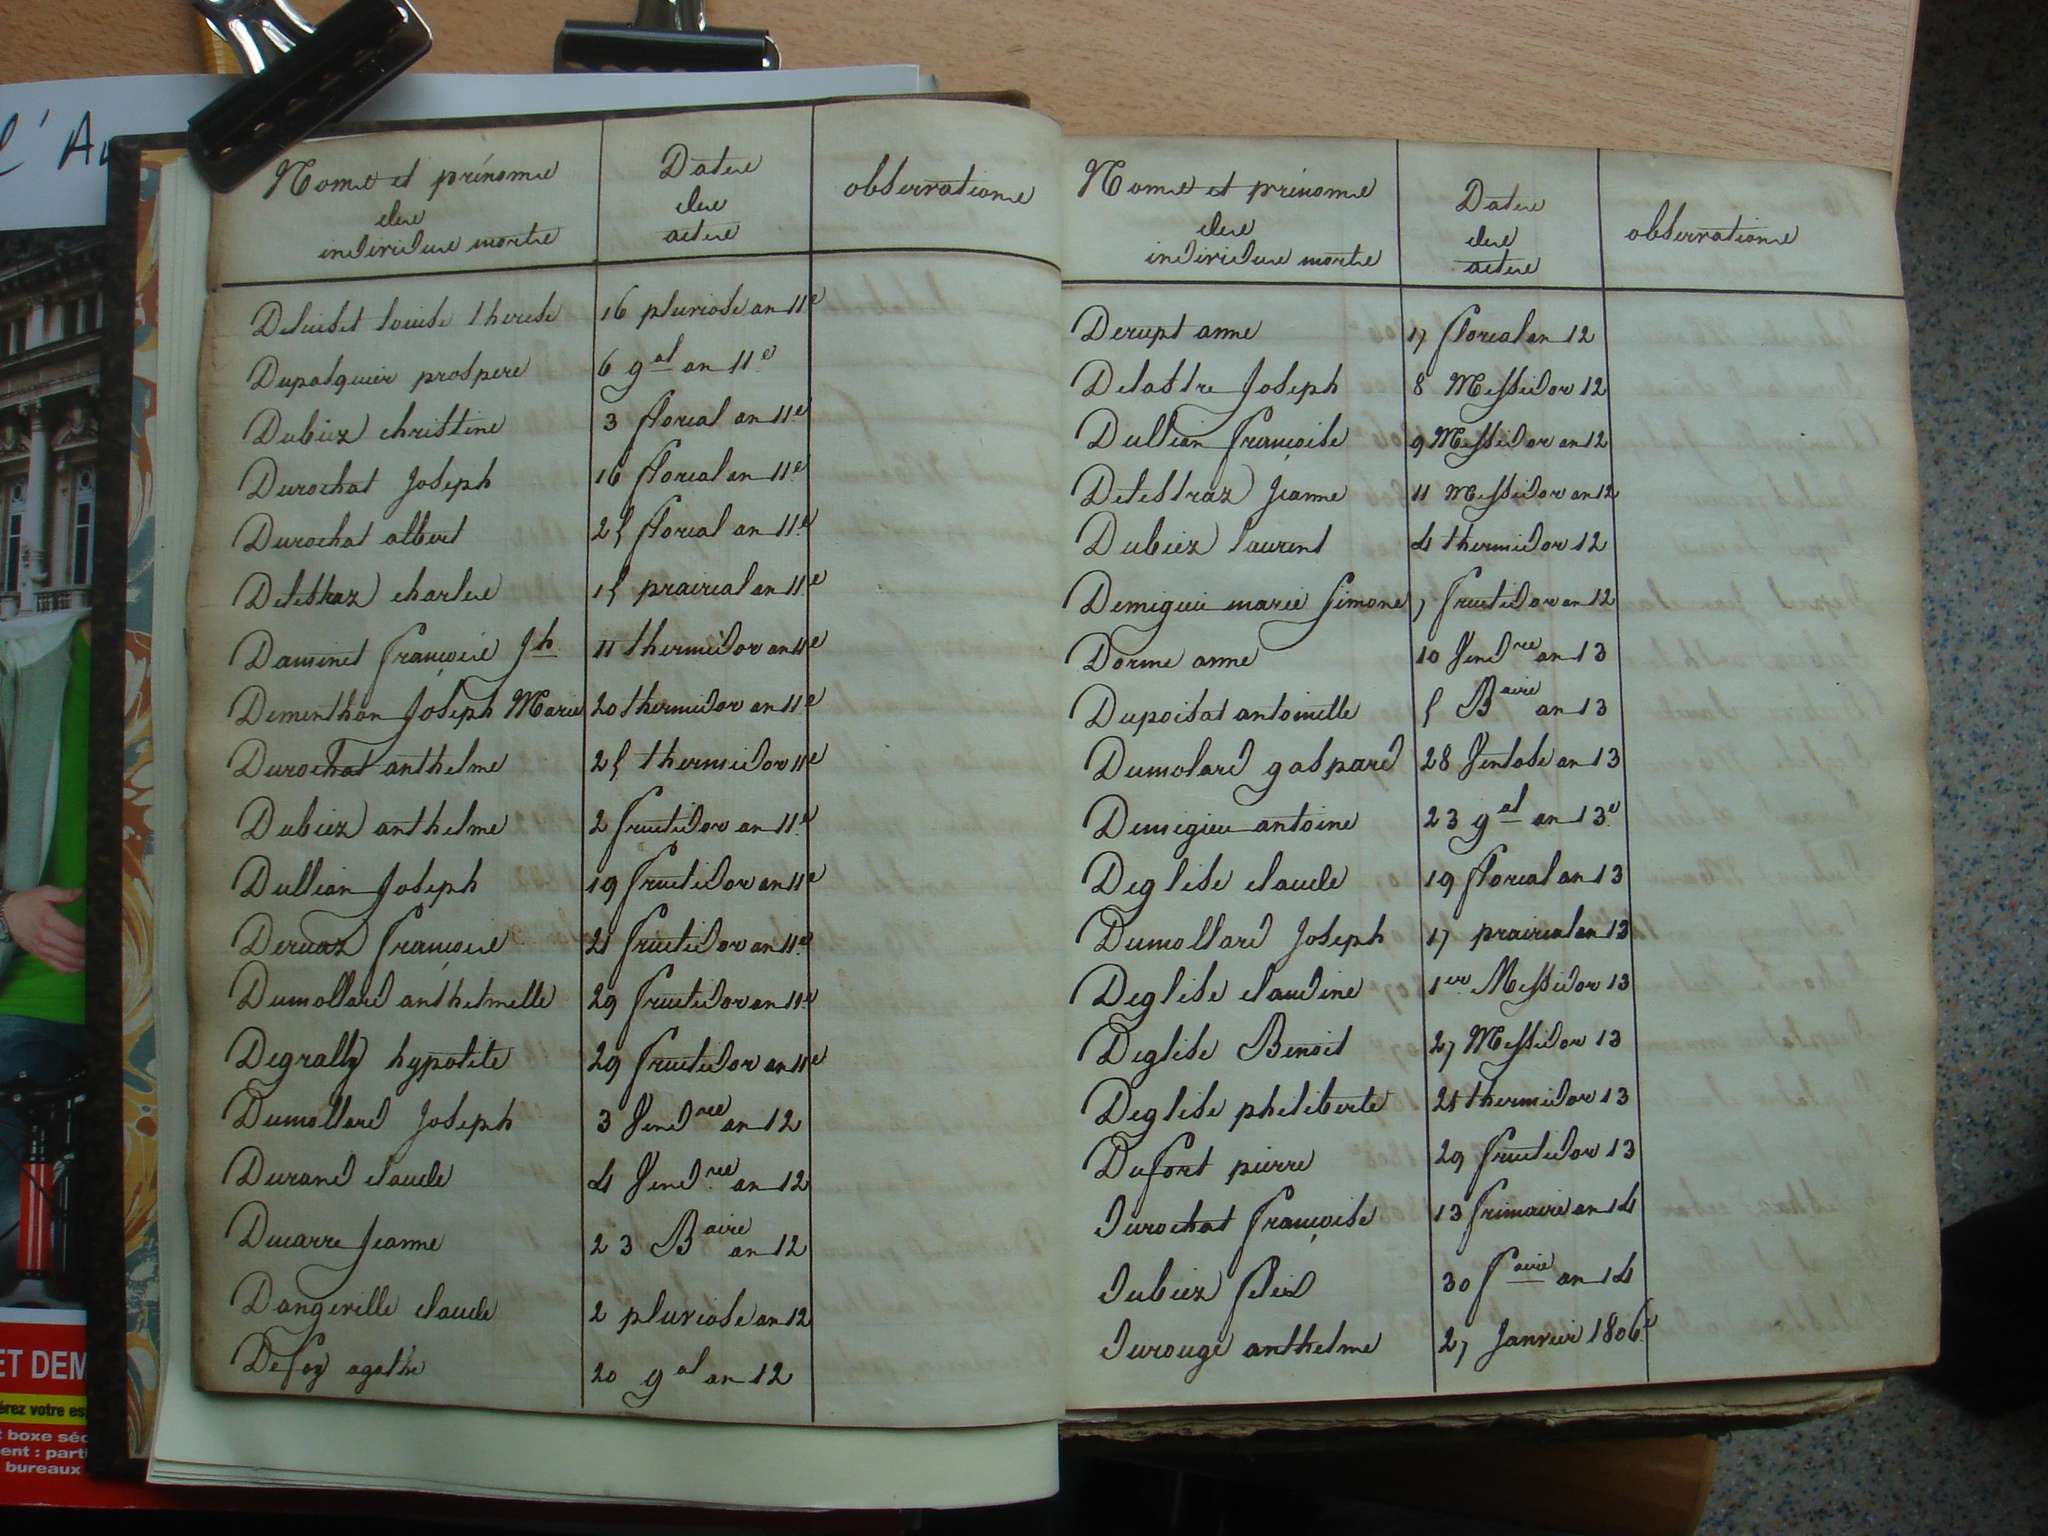 l'Au
Noms et prénoms
des
individus morts
Dates
des
actes
observations
Deluiset louise therese 16 pluviose an 11e
Dupasquier prospere 6 gal an 11e
Dubiez christine 3 floréal an 11e
Durochat Joseph 16 floréal an 11e
Durochat albert 25 floréal an 11e
Detestraz charles 15 prairial an 11e
Daminet françois Jh 11 thermidor an 11e
Dementhon Joseph Marie 20 thermidor an 11e
Durochat anthelme 25 thermidor 11e
Dubiez anthelme 2 fructidor an 11e
Dullian Joseph 19 fructidor an 11e
Dervaz françois 21 fructidor an 11e
Dumollard anthelmette 29 fructidor an 11e
Degrally hypolite 29 fructidor an 11e
Dumollard Joseph 3 Vendre an 12
Durand claude 4 Vendre an 12
Ducarre Jeanne 23 Baire an 12
Dangeville claude 2 pluviose an 12
Defoy agathe 20 gal an 12
Noms et prénoms
des
individus morts
Dates
des
actes
observations
Derupt anne 17 floréal an 12
Delastre Joseph 8 Messidor 12
Dullian françoise 9 Messidor an 12
Detestraz Jeanne 11 Messidor an 12
Dubiez laurent 4 thermidor 12
Demigieu marie Simone 7 fructidor an 12
Dorme anne 10 Vendre an 13
Dupoisat antoinette 5 Baire an 13
Dumolard gaspard 28 Ventose an 13
Demigieu antoine 23 gal an 13e
Deglise claude 19 floréal an 13
Dumollard Joseph 17 prairial an 13
Deglise claudine 1er Messidor 13
Deglise Benoit 27 Messidor 13
Deglise philiberte 21 thermidor 13
Dufort pierre 29 fructidor 13
Durochat françoise 13 frimaire an 14
Dubiez felix 30 faire an 14
Durouge anthelme 27 Janvier 1806e
ET DEM
érez votre esp
t boxe séc
ent : parti
bureaux